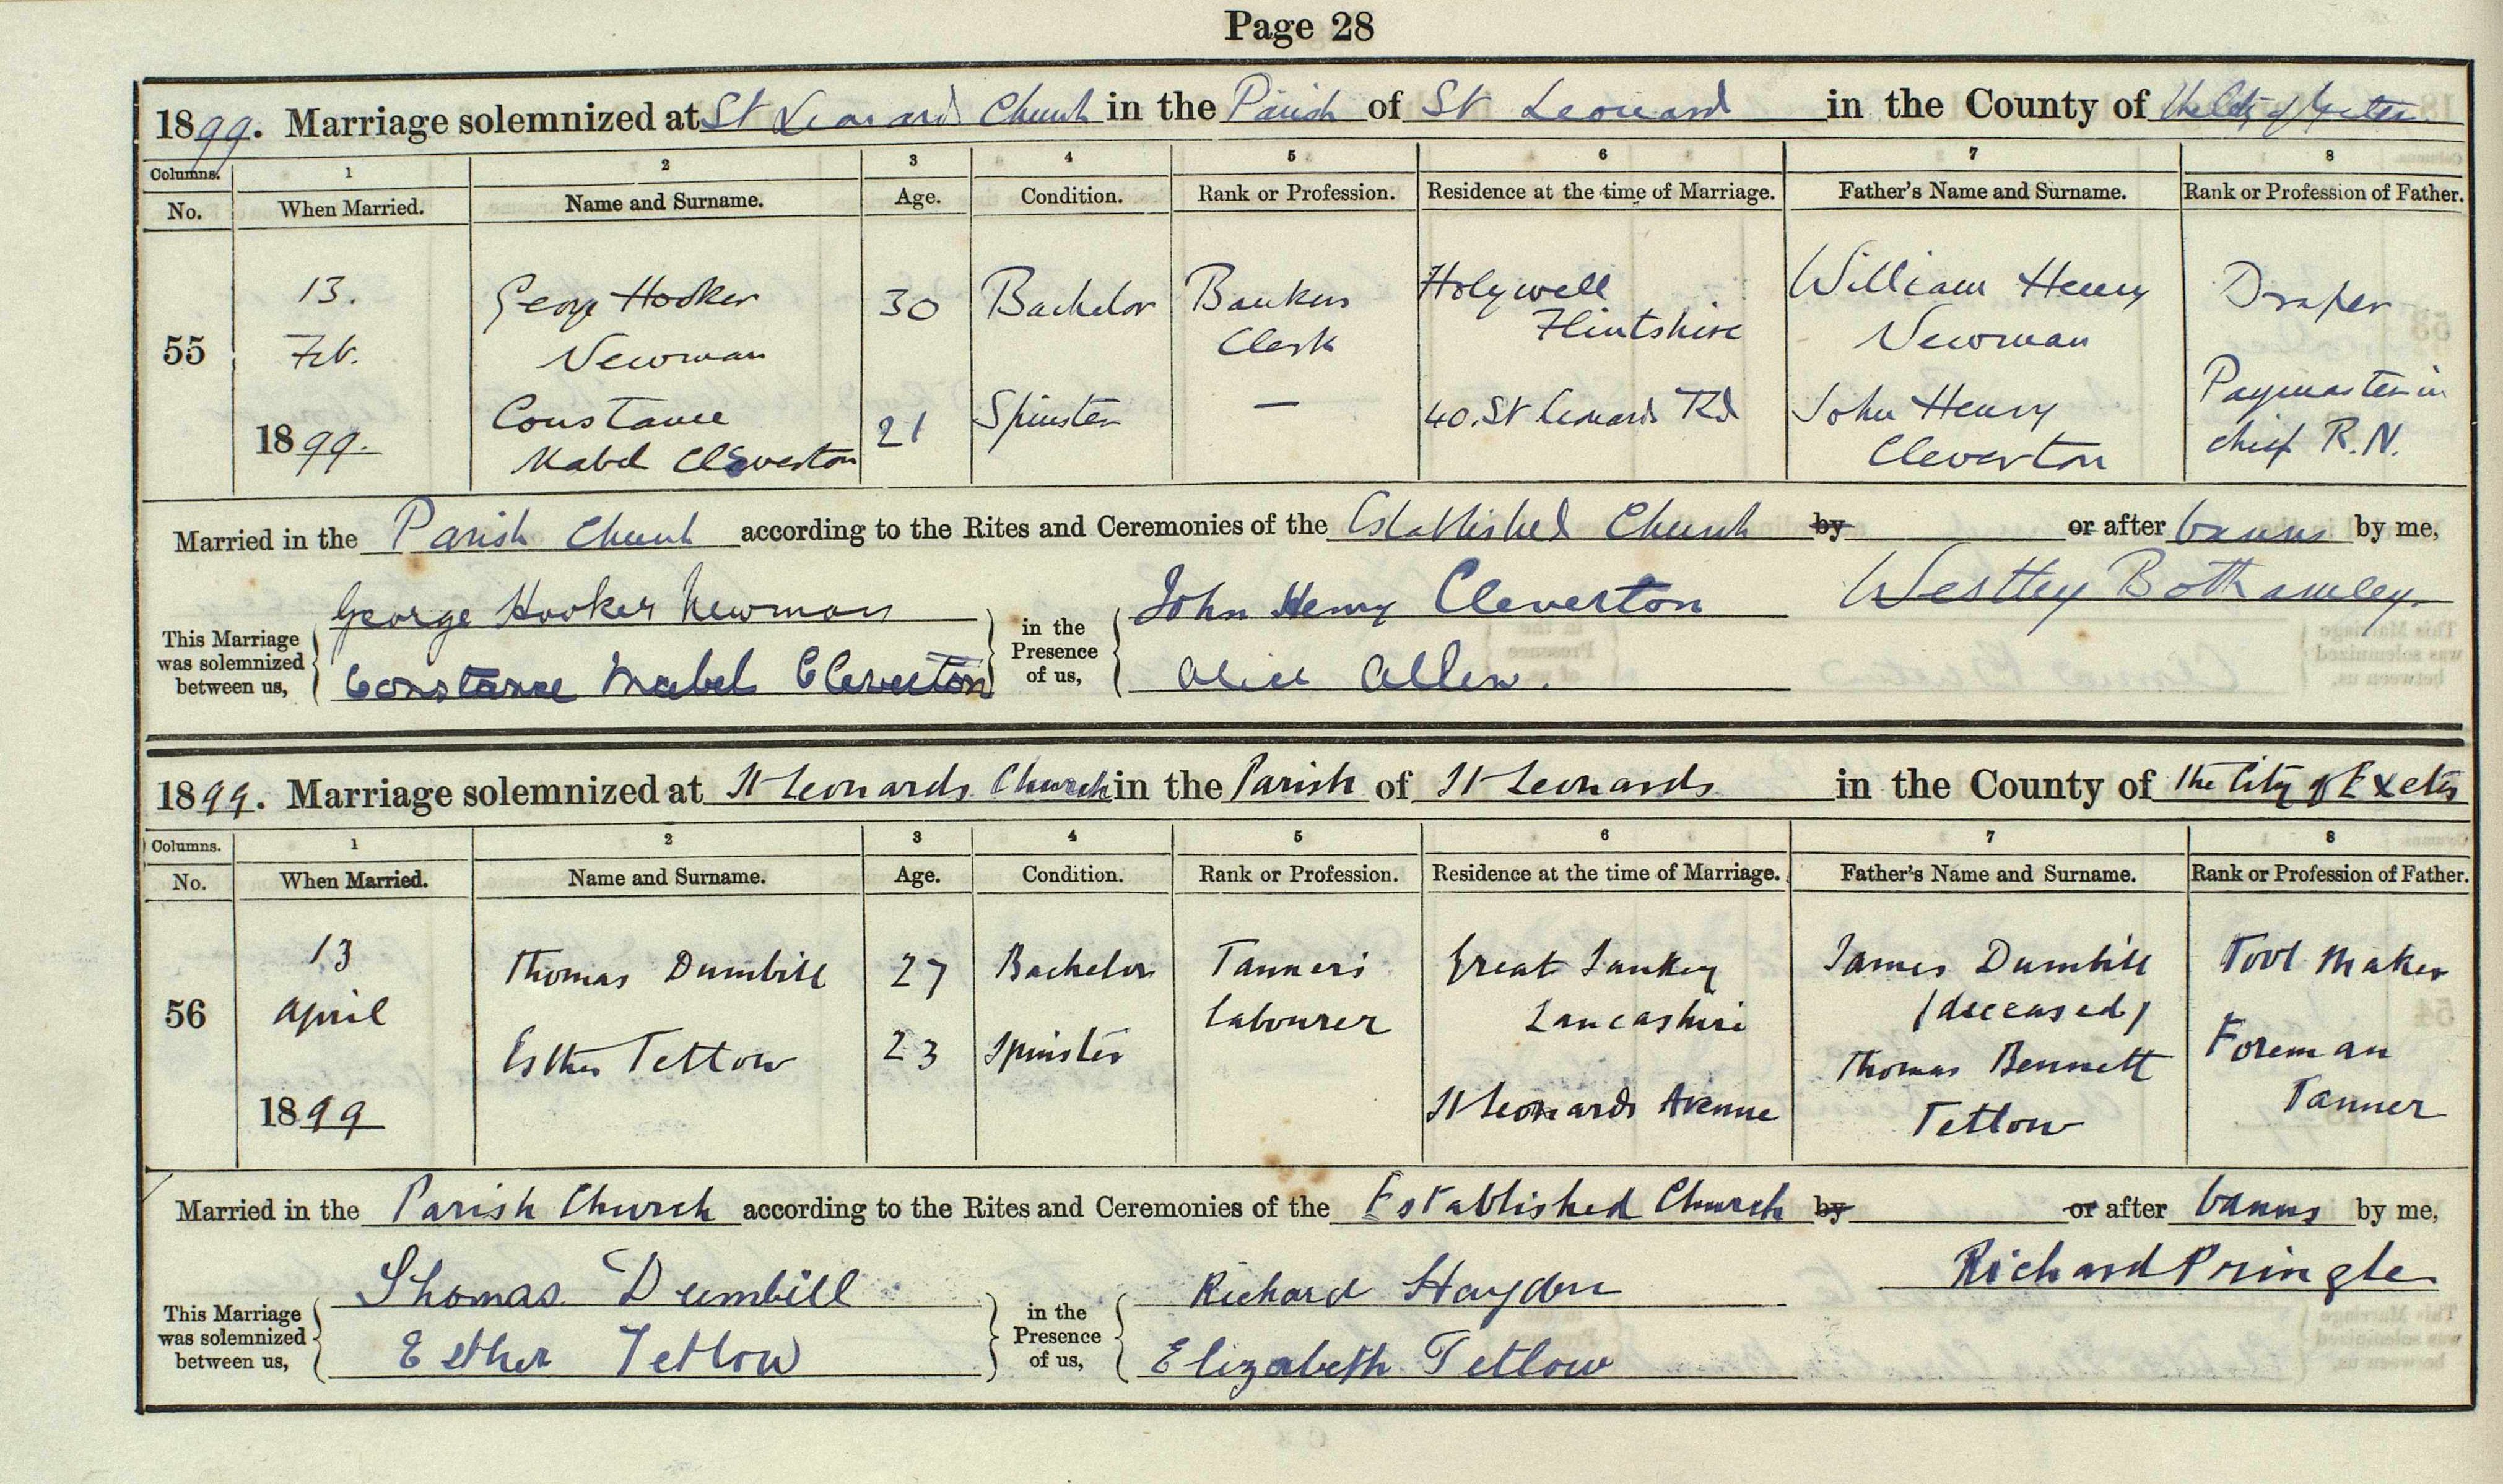 Page 28
1899. Marriage solemnized at St Leonards Church in the Parish of St Leonard in the County of the City of Exeter
Columns. 1 2 3 4 5 6 7 8
No. When Married. Name and Surname. Age. Condition. Rank or Profession. Residence at the time of Marriage. Father's Name and Surname. Rank or Profession of Father.
13. George Hooker 30 Bachelor Bankers Holywell William Henry Draper
55 Feb. Newman Clerk Flintshire Newman
Constance 21 Spinster — 40. St Leonards Rd John Henry Paymaster in
1899. Mabel Cleverton Cleverton chief R.N.
Married in the Parish Church according to the Rites and Ceremonies of the Established Church by or after banns by me,
George Hooker Newman John Henry Cleverton Westley Bothamley.
This Marriage was solemnized between us, in the Presence of us,
Constance Mabel Cleverton Alice Allen.
1899. Marriage solemnized at St Leonards Church in the Parish of St Leonards in the County of the City of Exeter
Columns. 1 2 3 4 5 6 7 8
No. When Married. Name and Surname. Age. Condition. Rank or Profession. Residence at the time of Marriage. Father's Name and Surname. Rank or Profession of Father.
13 Thomas Dumbill 27 Bachelor Tanner's Great Sankey James Dumbill Tool Maker
56 April labourer Lancashire (deceased)
Esther Tetlow 23 Spinster Thomas Bennett Foreman
1899 St Leonards Avenue Tetlow Tanner
Married in the Parish Church according to the Rites and Ceremonies of the Established Church by or after banns by me,
Thomas Dumbill Richard Haydon Richard Pringle
This Marriage was solemnized between us, in the Presence of us,
Esther Tetlow Elizabeth Tetlow